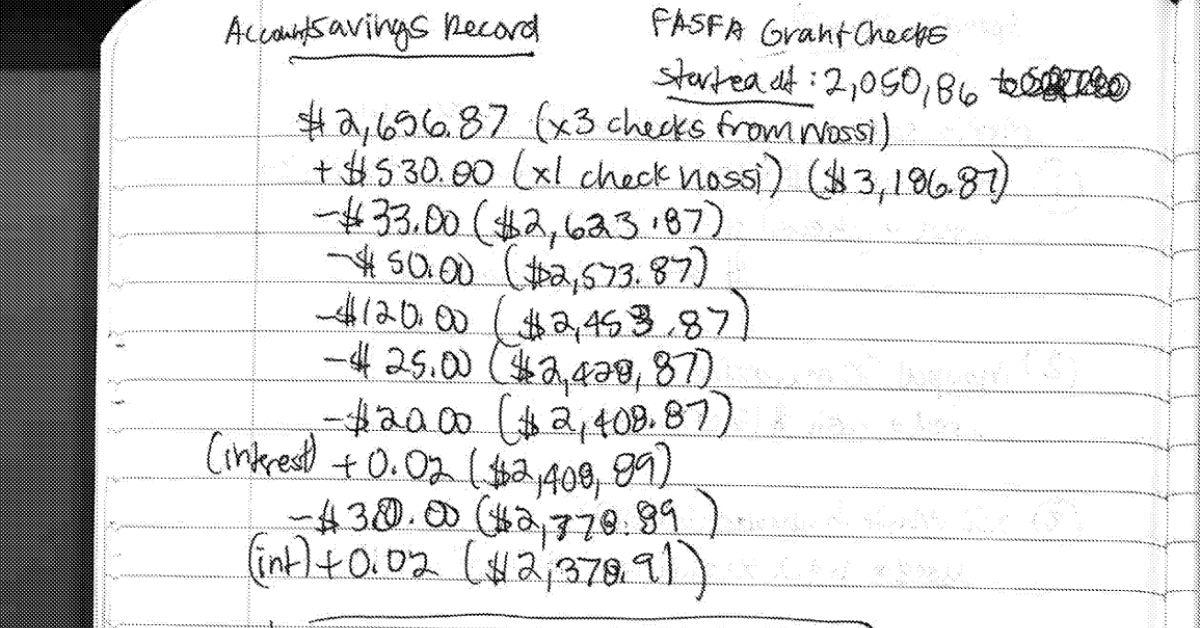 Account Savings Record
FASFA Grant Checks
started at: 2,050,86
$2,656.87 (x3 checks from Nossi)
+ $530.00 (x1 check nossi) ($3,186.87)
-$33.00 ($2,623.87)
-$50.00 ($2,573.87)
-$120.00 ($2,453.87)
-$25.00 ($2,428,87)
-$20.00 ($2,408.87)
(interest) +0.02 ($2,408,89)
-$30.00 ($2,378.89)
(int) +0.02 ($2,378.91)